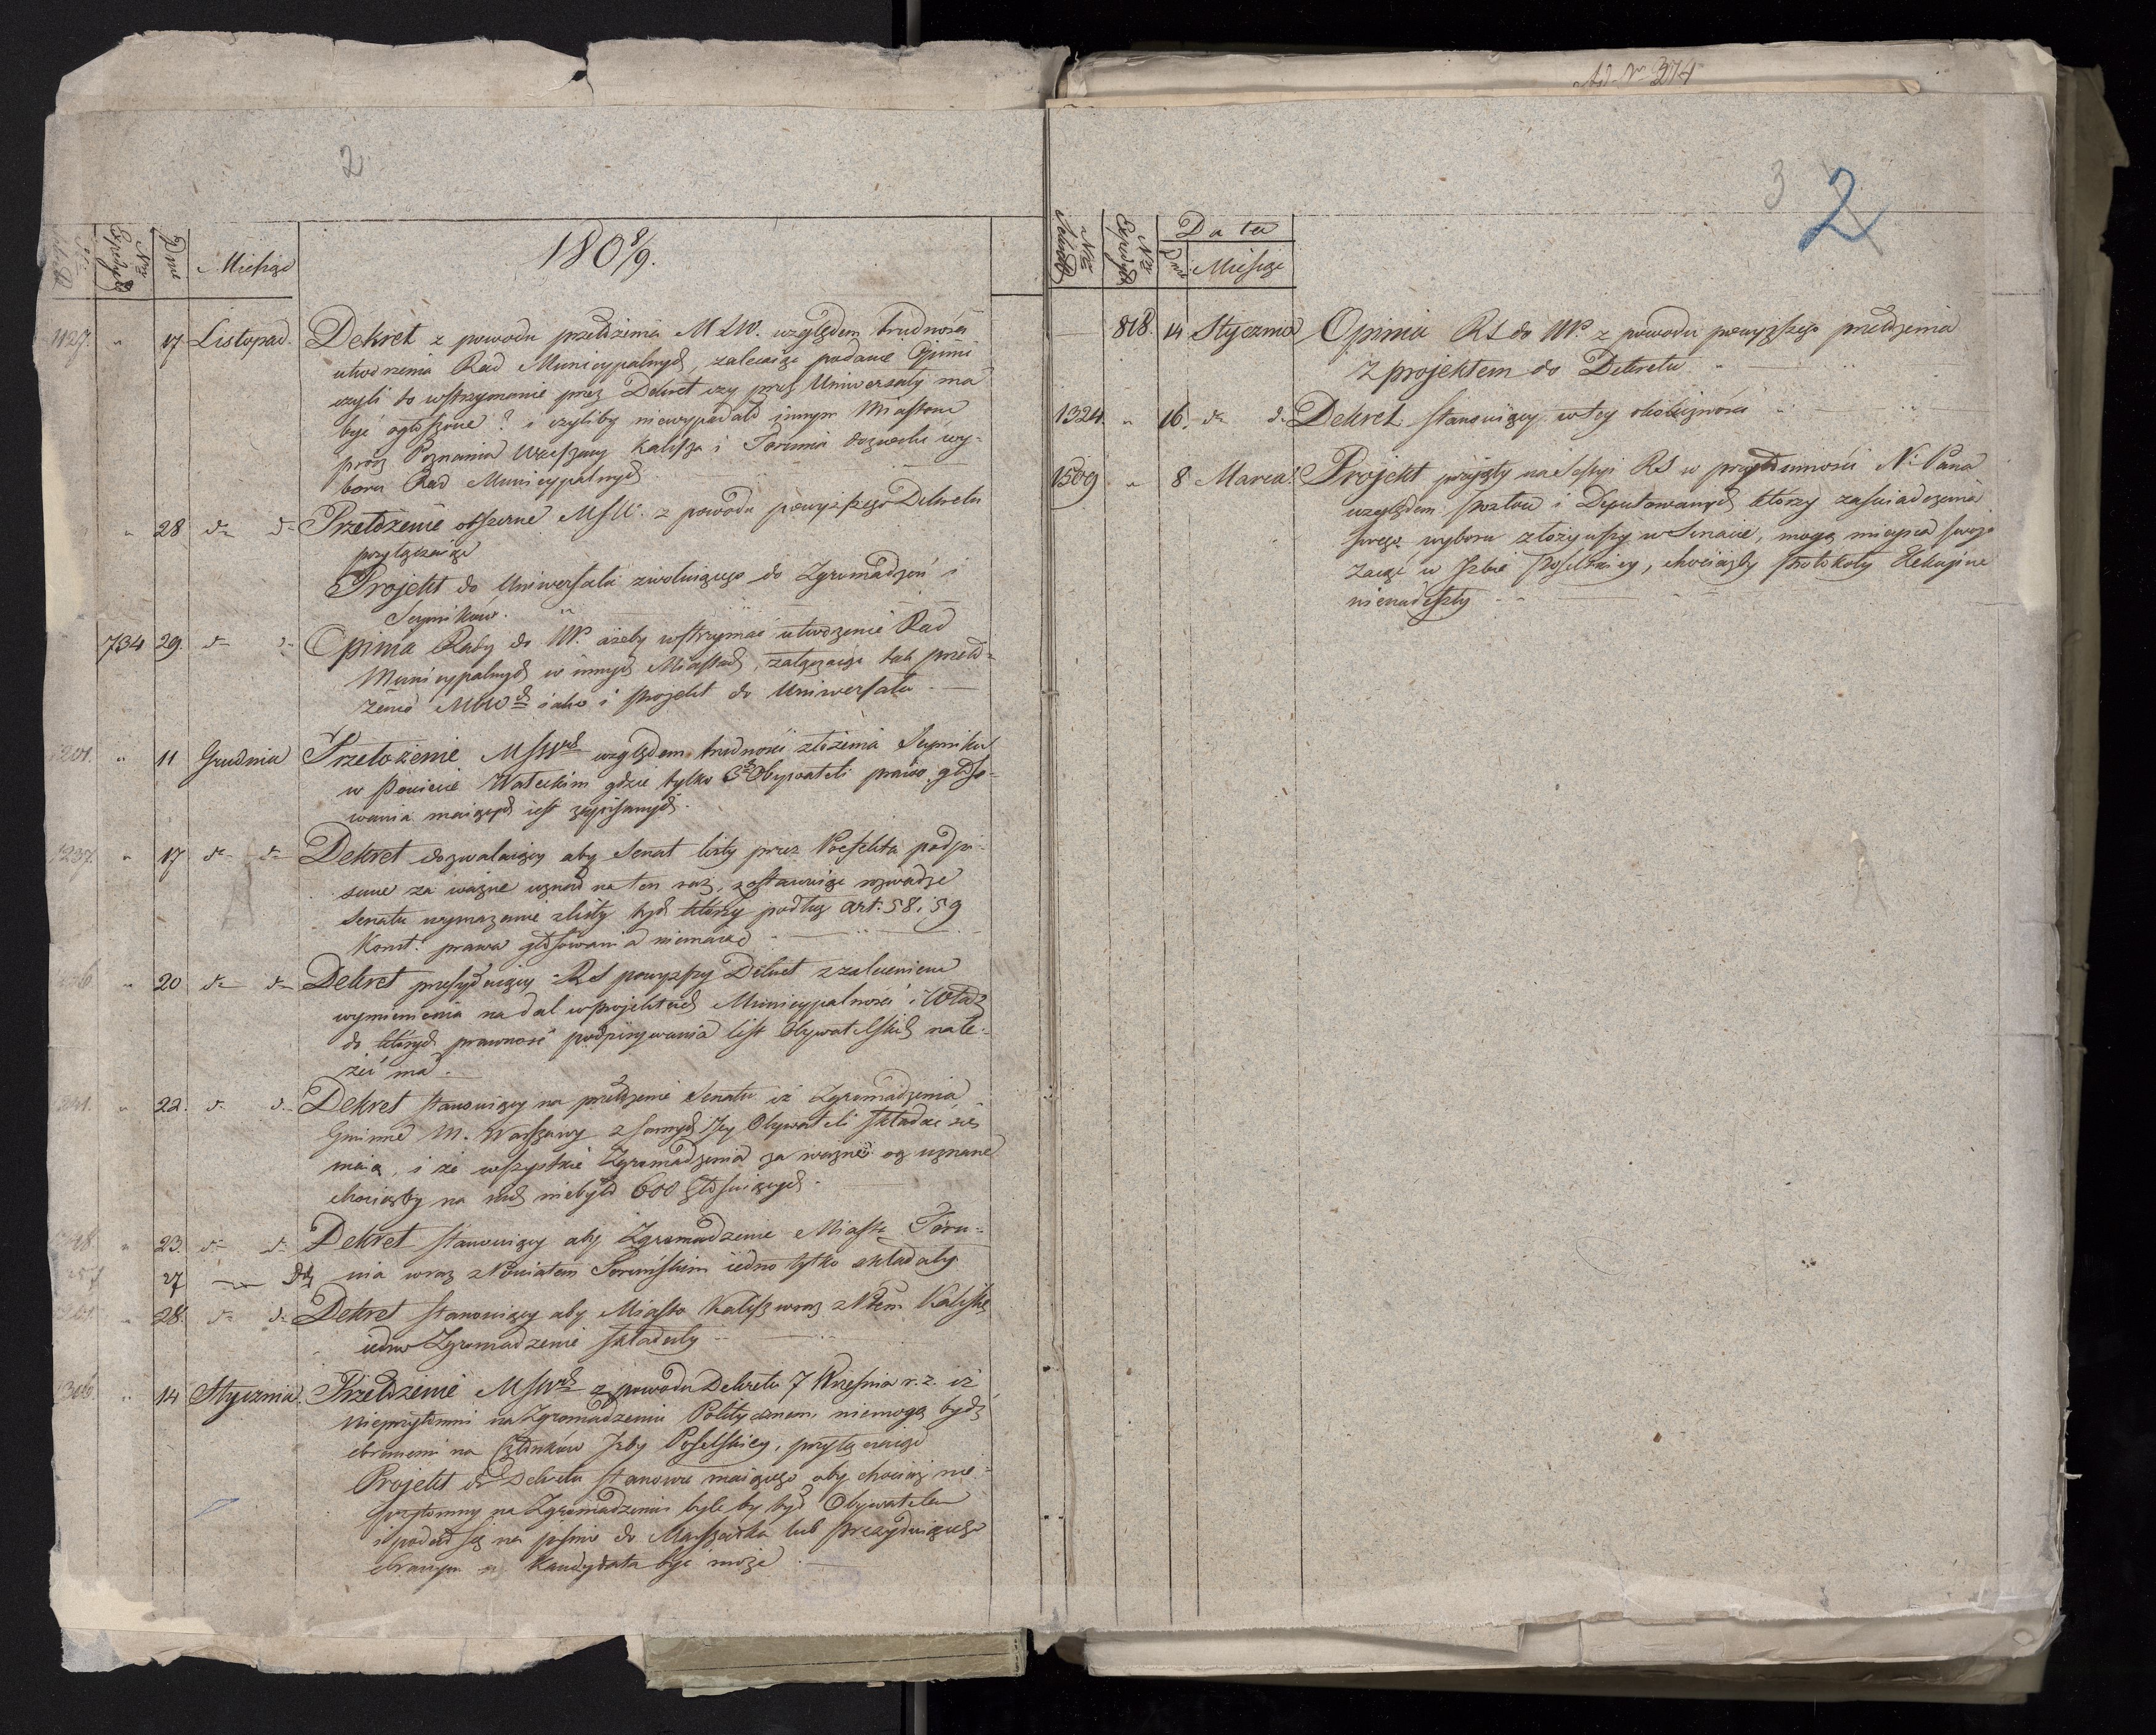 2
Nrz Expedycyi
Dnie
Miesiąc
180 8/9.
1127. " 17 Listopad. Dekret z powodu przełożenia M S W. względem trudności
utworzenia Rad Municypalnych, zalecaiąc podanie Opinii
czyli to wstrzymanie przez Dekret czy przez Uniwersały ma
być ogłoszone? i czyliby niewypadało innym Miastom
prócz Poznania Warszawy Kalisza i Torunia dozwolić wy-
boru Rad Municypalnych
" 28 dn dn Przełożenie obszerne MSW. z powodu powyższego Dekretu
przyłączaiąc
Projekt do Uniwersału zwołuiącego do Zgromadzeń i
Seymików.
734 29. dn dn Opinia Rady do NP. ażeby wstrzymać utworzenie Rad
Municypalnych w innych Miastach, załączaiąc tak przeło-
żenie MSW iako i projekt do Uniwersału
1201. " 11 Grudnia Przełożenie MSWch względem trudności złożenia Seymiku
w Powiecie Wałeckim gdzie tylko 3ch Obywateli prawo głoso-
wania maiących iest zapisanych.
1237. " 17 dn dn Dekret dozwalaiący aby Senat listy przez Prefekta podpi-
sane za ważne uznał na ten raz, zostawuiąc rozwadze
Senatu wymazanie z listy tych którzy podług art: 58 i 59
Konst: prawa głosowania niemaią
" 20 dn dn Dekret przesyłaiący RS powyższy Dekret z zaleceniem
wymienienia nadal w projektach Municypalności i Władz
do których prawność podpisywania list Obywatelskich nale-
żeć ma.
" 22. d. d. Dekret stanowiący na przełożenie Senatu iż Zgromadzenia
Gminne M. Warszawy z samych Jey Obywateli składać się
maią, i że wszystkie Zgromadzenia za ważne są uznane
chociażby na nich niebyło 600 głosuiących.
" 23. dn dn Dekret stanowiący aby Zgromadzenie Miasta Toru-
27 nia wraz z Powiatem Toruńskim iedno tylko składały
" 28. dn dn Dekret stanowiący aby Miasto Kalisz wraz z Ptem Kalisk
iedno Zgromadzenie składały
1306. " 14 Stycznia. Przełożenie MSWch z powodu Dekretu 7 Września r. z. iż
Nieprzytomni na Zgromadzeniu Politycznem niemogą bydź
obranemi na Członków Izby Poselskiey, przyłączaiąc
Projekt do Dekretu stanowić maiącego aby chociaż nie-
przytomny na Zgromadzeniu byle by był Obywatelem
i podał się na piśmie do Marszałka lub prezyduiącego
obranym na Kandydata być może
Ad Nr 374
3 2
Nrz Expedycyi
Data
Dnie
Miesiąc
818. 14 Stycznia Opinia RS do NP. z powodu powyższego przełożenia
z projektem do Dekretu
1324. " 16. dn d. Dekret stanowiący w tey okoliczności
1509 " 8 Marca. Projekt przyięty na Sessyi RS w przytomności N. Pana
względem Posłów i Deputowanych którzy zaświadczenia
swego wyboru złożywszy w Senacie, mogą mieysca swoje
zaiąć w Izbie Poselskiey, chociażby protokoły Elekcyjne
nienadeszły